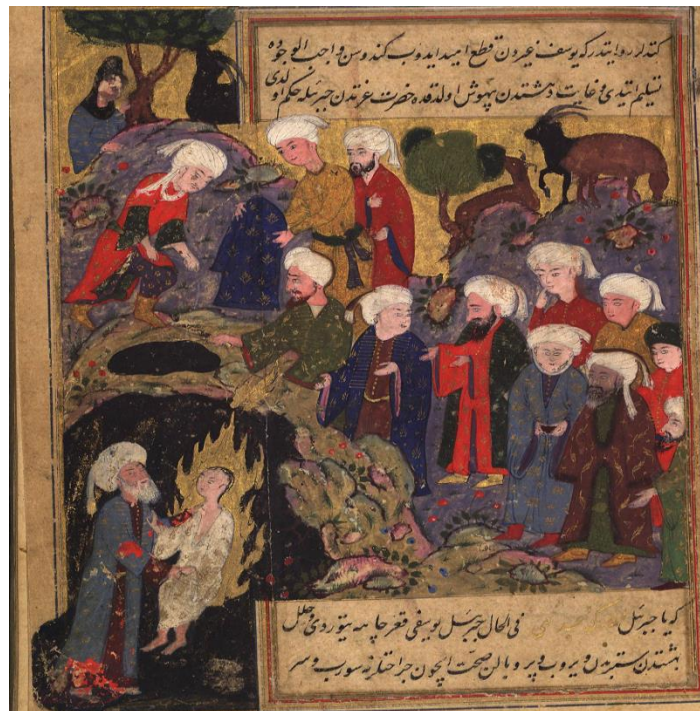 كتدلر روايتدر كه يوسف غيردن قطع اميد ايدوب كندوسن واجب الوجوده
تسليم ايتدى و غايت دهشتدن بيهوش اولدقده حضرت عزتدن جبرئيله حكم اولدى
كه يا جبرئيل فى الحال جبرئيل يوسفى قعر چاهه يتوردى حلل
بهشتدن ستر بدن ويروب و پر و بالن صحت ايچون جراحتلرنه سورب و سر